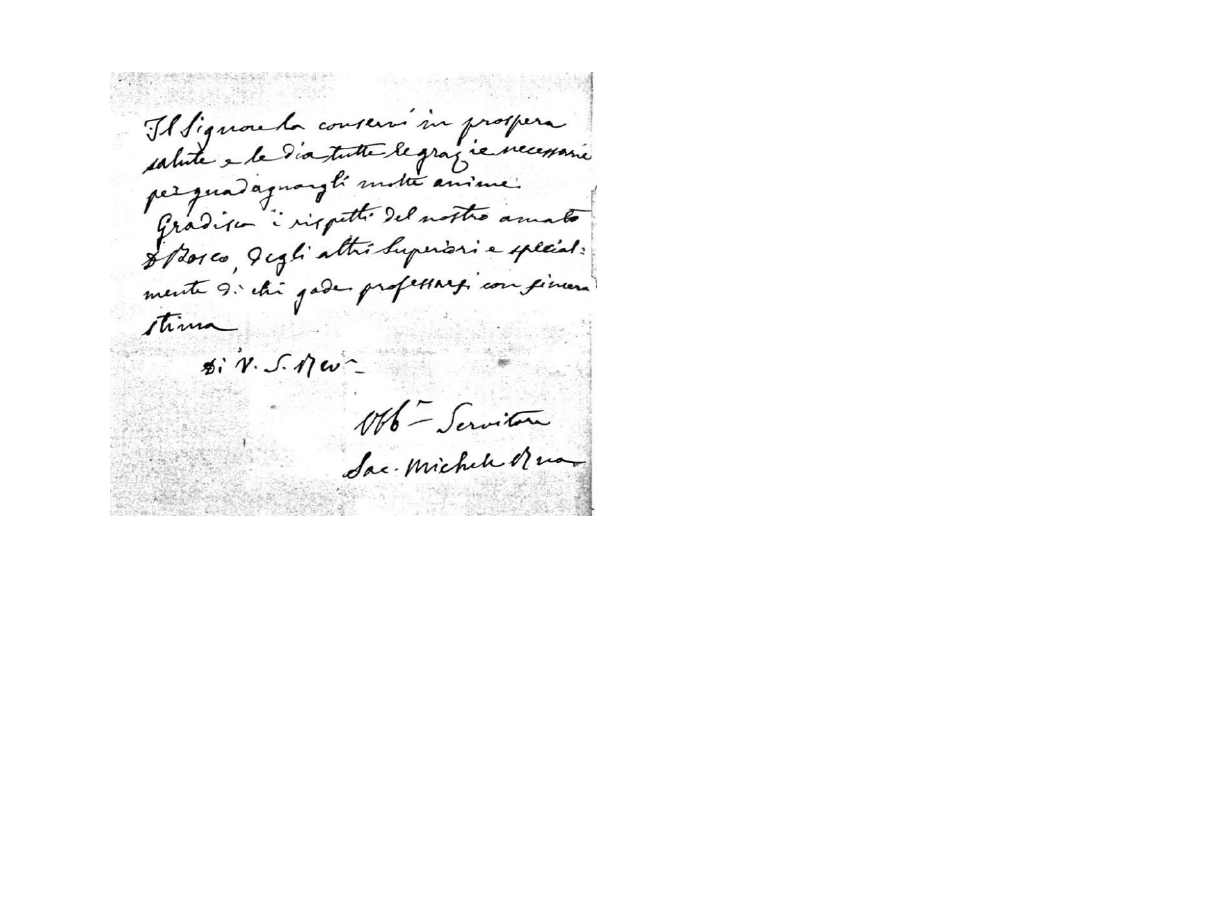 Il Signore la conservi in prospera
salute e le dia tutte le grazie necessarie
per guadagnargli molte anime.
Gradisca i rispetti del nostro amato
D Bosco, degli altri Superiori e special=
mente di chi gode professarsi con sincera
stima
Di V. S. Rev.
Obb. Servitore
Sac. Michele Rua